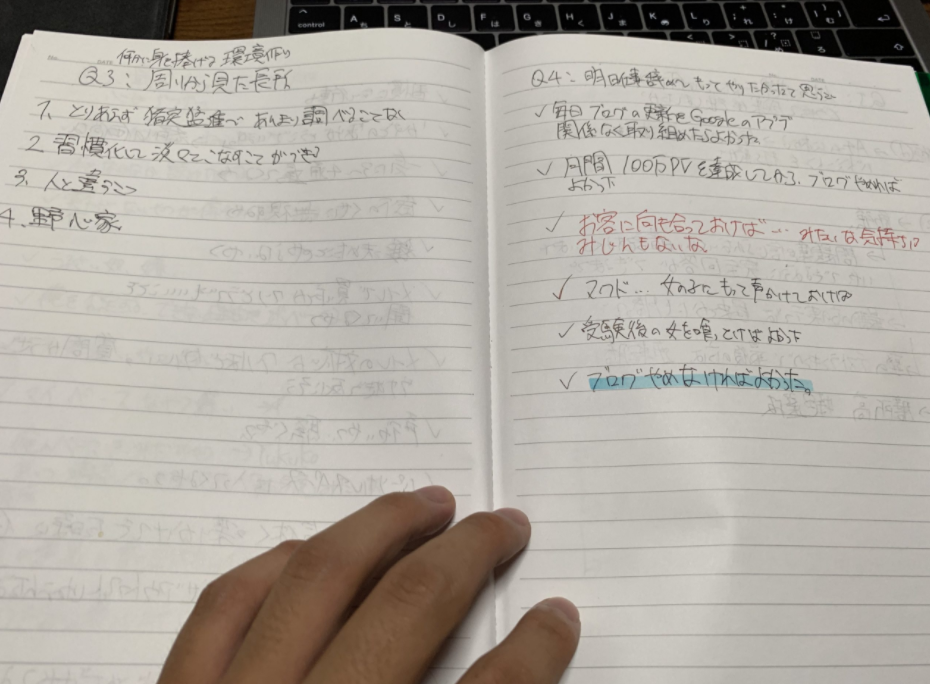 control
A
S
D
F
G
H
J
K
L
何かに身を捧げる 環境作り
Q3:周りから見た長所
1、とりあえず 猪突猛進で あんまり調べることなく
2. 習慣化して淡々とこなすことができる
3. 人と違うこと
4. 野心家
Q4: 明日仕事辞め もっと やりたかったなって思うこと
✓ 毎日ブログの更新をGoogleのアプデ
関係なく取り組めたらよかった
✓ 月間100万PVを達成してから、ブログやめれば
よかった
✓ お客に向き合っておけば… みたいな気持ちは
みじんもないな
✓ マクド… 女の子にもっと声かけておけば
✓ 受験後の女を喰っとけばよかった
✓ ブログやめなければよかった。